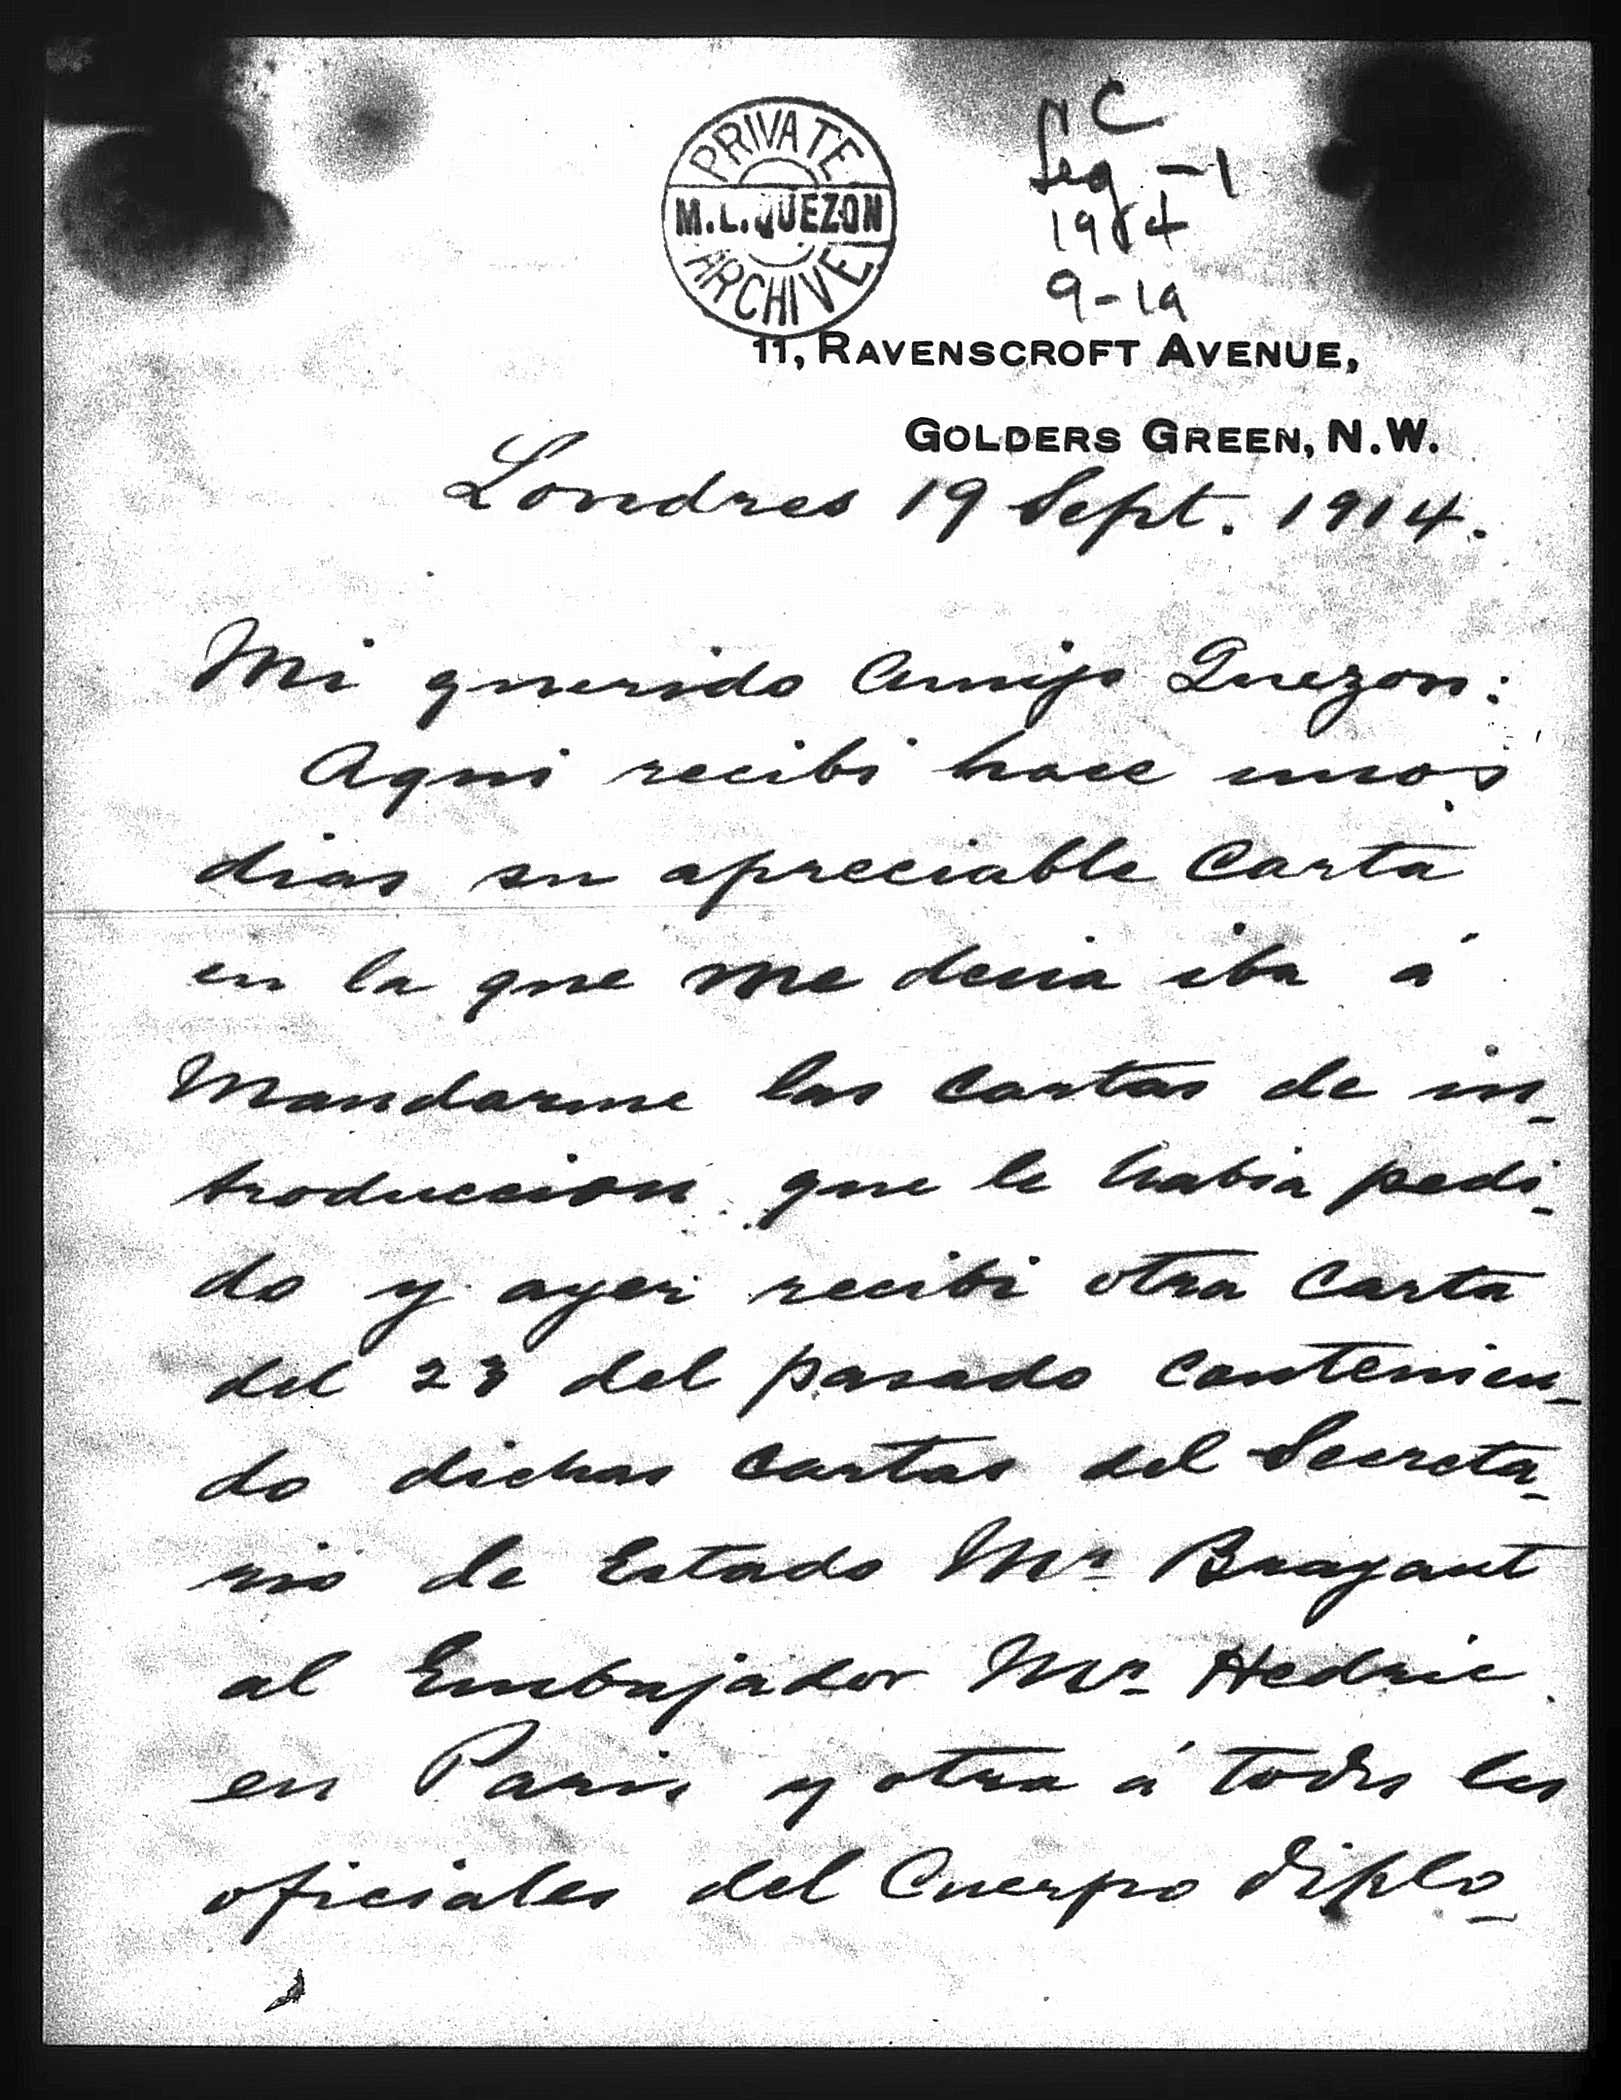 PRIVATE
M.L.QUEZON
ARCHIVE
C
Seq -1
1914
9-19
11, RAVENSCROFT AVENUE,
GOLDERS GREEN, N.W.
Londres 19 Sept. 1914.
Mi querido amigo Quezon:
Aqui recibi hace unos
dias su apreciable carta
en la que me decia iba á
mandarme las cartas de in-
troduccion que le habia pedi-
do y ayer recibi otra carta
del 23 del pasado contenien-
do dichas cartas del Secreta-
rio de Estado Mr Bragant
al Embajador Mr Hedric
en Paris y otra á todos los
oficiales del Cuerpo diplo-